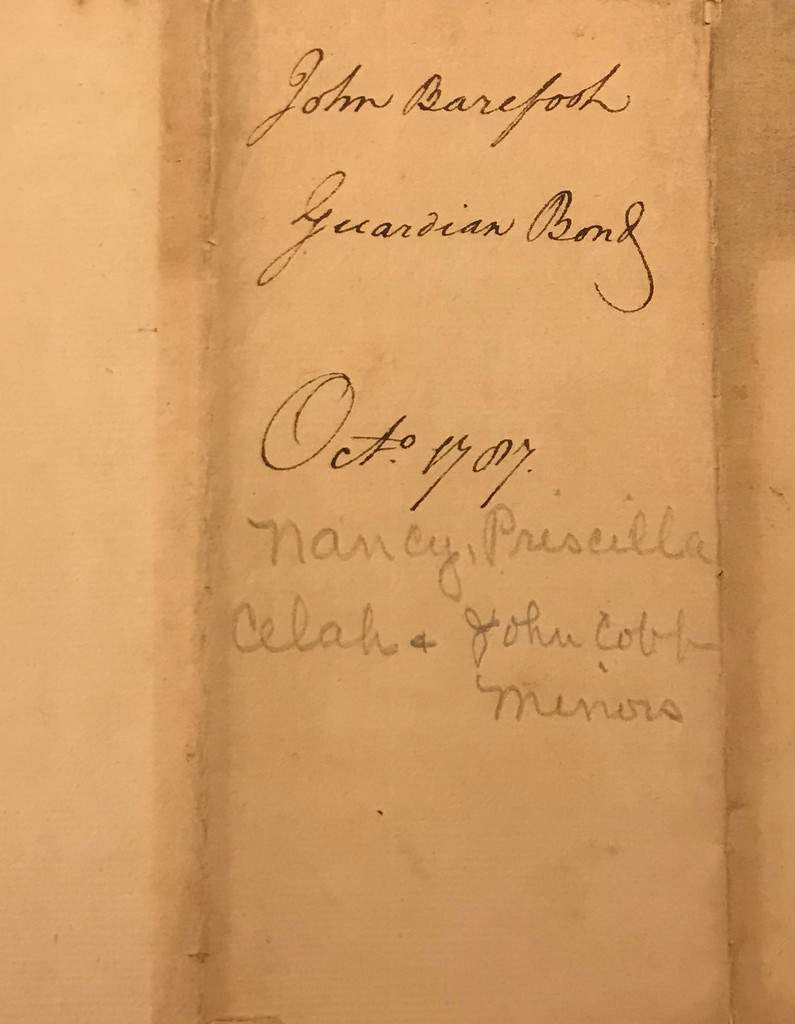 John Barefoot
Guardian Bond
Octo. 1787.
Nancy, Priscilla
Celah & John Cobb
Minors